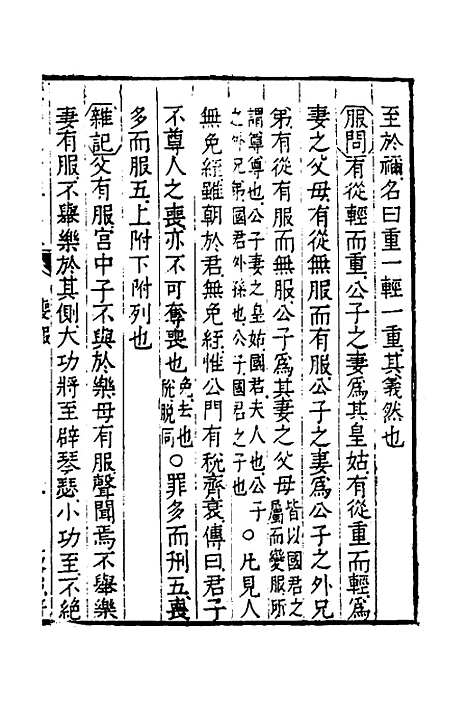 至於禰名曰重一輕一重其義然也
服問有從輕而重公子之妻爲其皇姑有從重而輕爲
妻之父母有從無服而有服公子之妻爲公子之外兄
弟有從有服而無服公子爲其妻之父母皆以國君之屬而變服所
謂尊尊也公子妻之皇姑國君夫人也公子之外兄弟國君外孫也公子國君之子也○凡見人
無免絰雖朝於君無免絰惟公門有稅齊衰傳曰君子
不尊人之喪亦不可奪喪也免去也稅脱同○罪多而刑五喪
多而服五上附下附列也
雜記父有服宮中子不與於樂母有服聲聞焉不舉樂
妻有服不舉樂於其側大功將至辟琴瑟小功至不絶
喪服